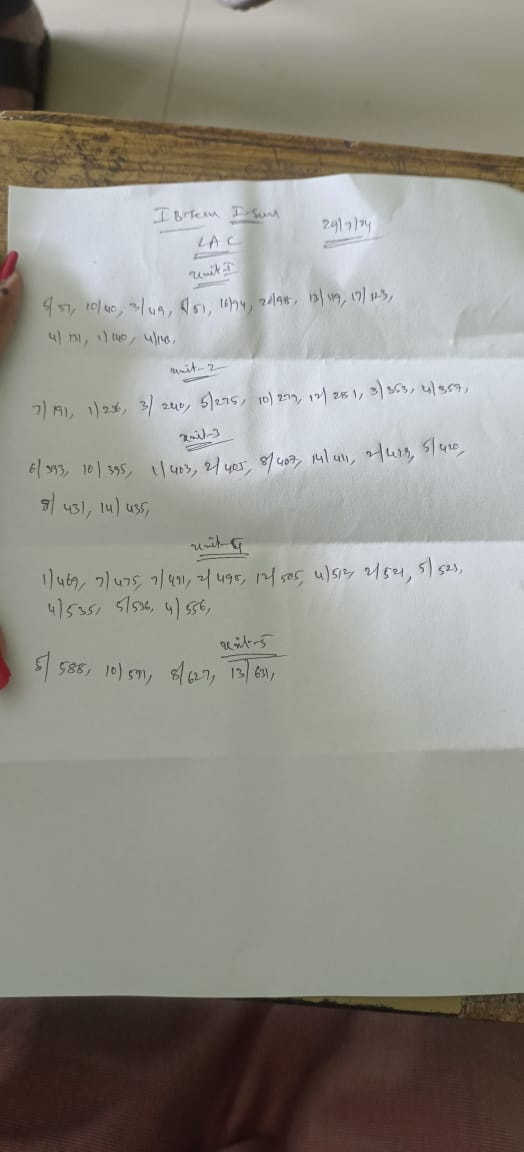 I BTech I-Sem
29/7/24
LAC
unit-I
5/37, 10/40, 3/49, 5/51, 16/94, 20/98, 13/119, 17/123,
4/131, 1/140, 4/148,
unit-2
7/191, 1/236, 3/240, 5/275, 10/279, 12/281, 3/353, 4/357,
unit-3
6/393, 10/395, 1/403, 2/405, 8/407, 14/411, 2/413, 5/420,
8/431, 14/435,
unit-4
1/469, 7/475, 7/491, 2/495, 12/505, 4/512, 2/521, 5/523,
4/535, 5/536, 4/556,
unit-5
5/588, 10/591, 8/627, 13/631,